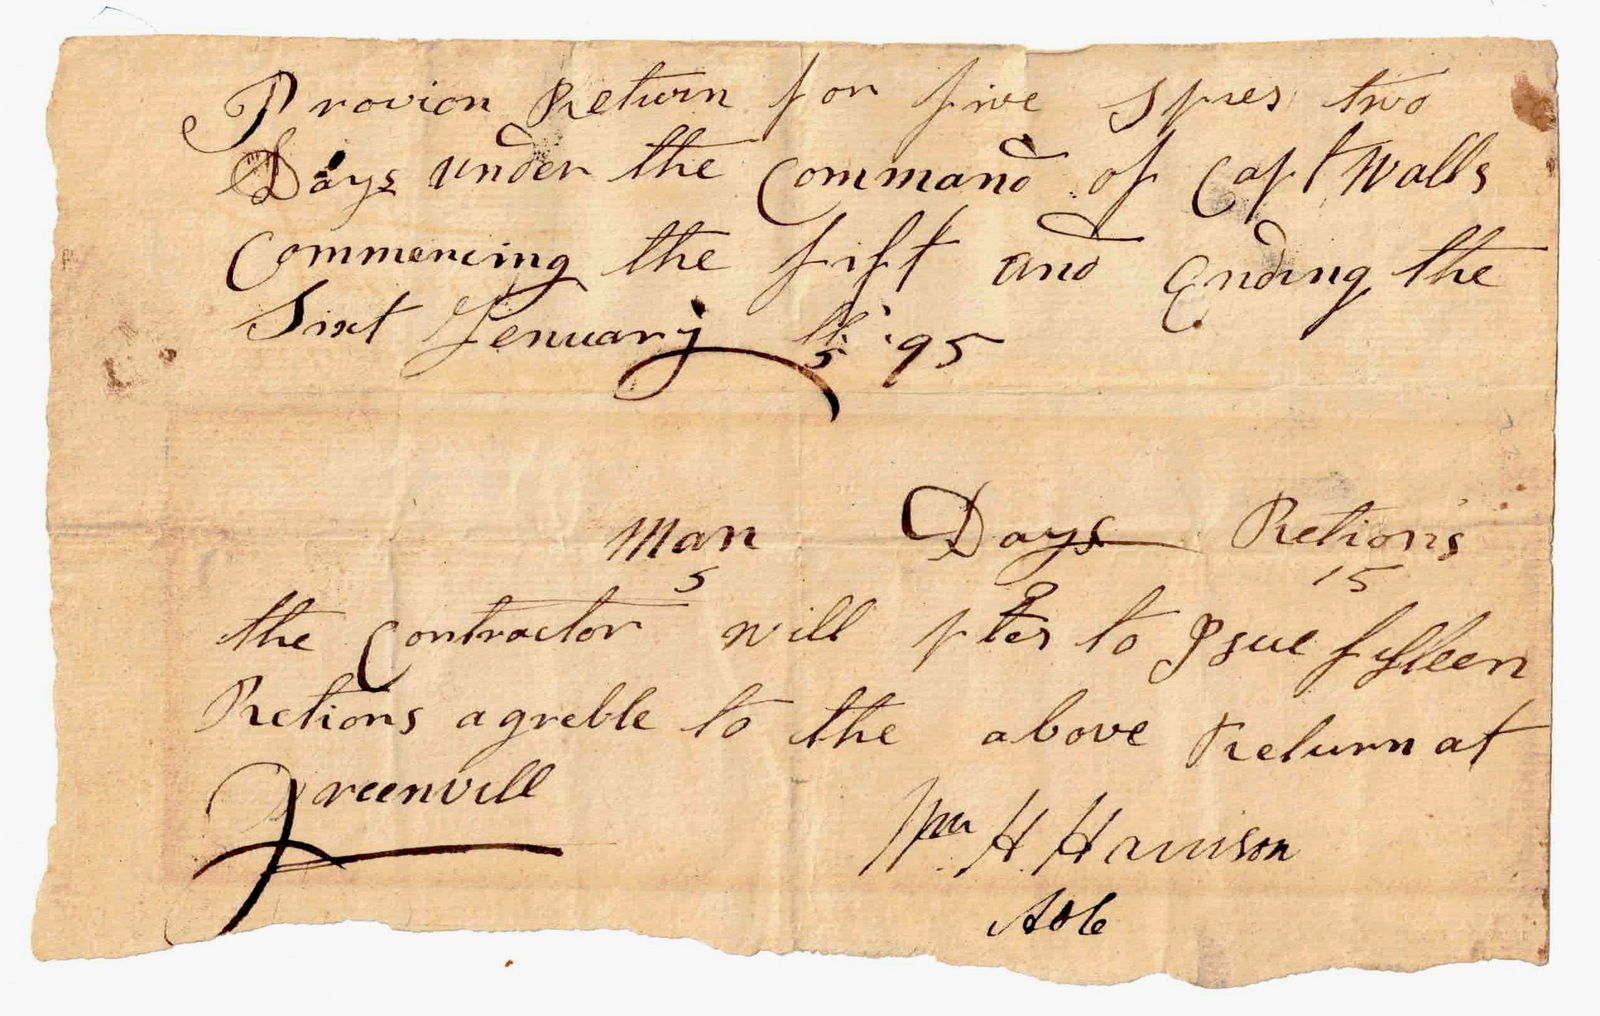 Provion Return for five Spies two
Days under the Command of Capt Walls
Commencing the fift and Ending the
Sixt Jenuary 95
Man Days Retions
5 2 15
the Contractor will to Isue fifteen
Retions agreble to the above Return at
Greenvill
Wm H Harrison
ADC